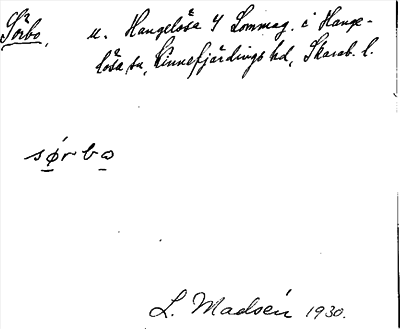 Sörbo, u. Hangelösa 4 Sommag. i Hange-
lösa sn, Kinnefjärdings hd, Skarab. l.
sørbω
L. Madsén 1930.